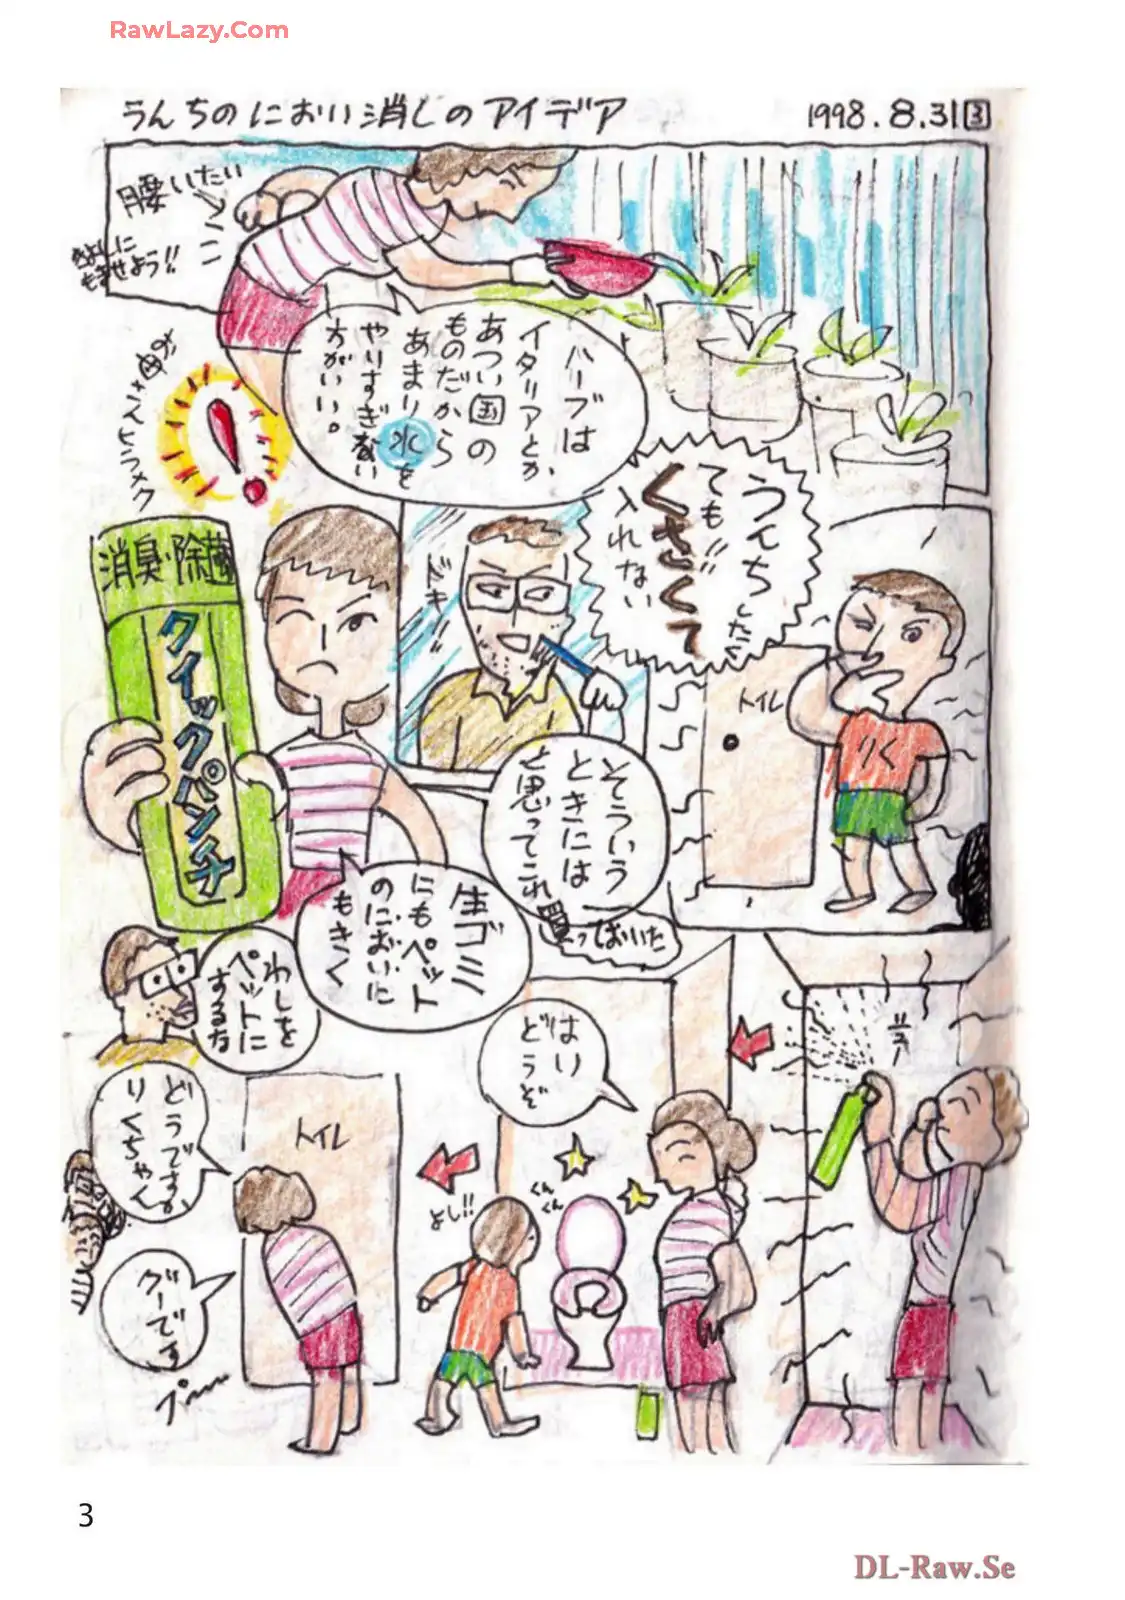 RawLazy.Com
うんちのにおい消しのアイデア
1998.8.31 3
腰いたい
もませよう!!
ハーブは
イタリアとか
あつい国の
ものだから
あまり水を
やりすぎない
方がいい。
うんちしたく
ても!!
くさくて
入れない
トイレ
りく
ドキ!!
そういう
ときには
と思ってこれ
買っておいた
消臭・除菌
クイックパンチ
生ゴミ
にもペット
のにおいに
もきく
わしを
ペットに
するな
シュー
はい
どうぞ
くんくん
よし!!
トイレ
どうですか
りくちゃん
グーです
プ〜
3
DL-Raw.Se